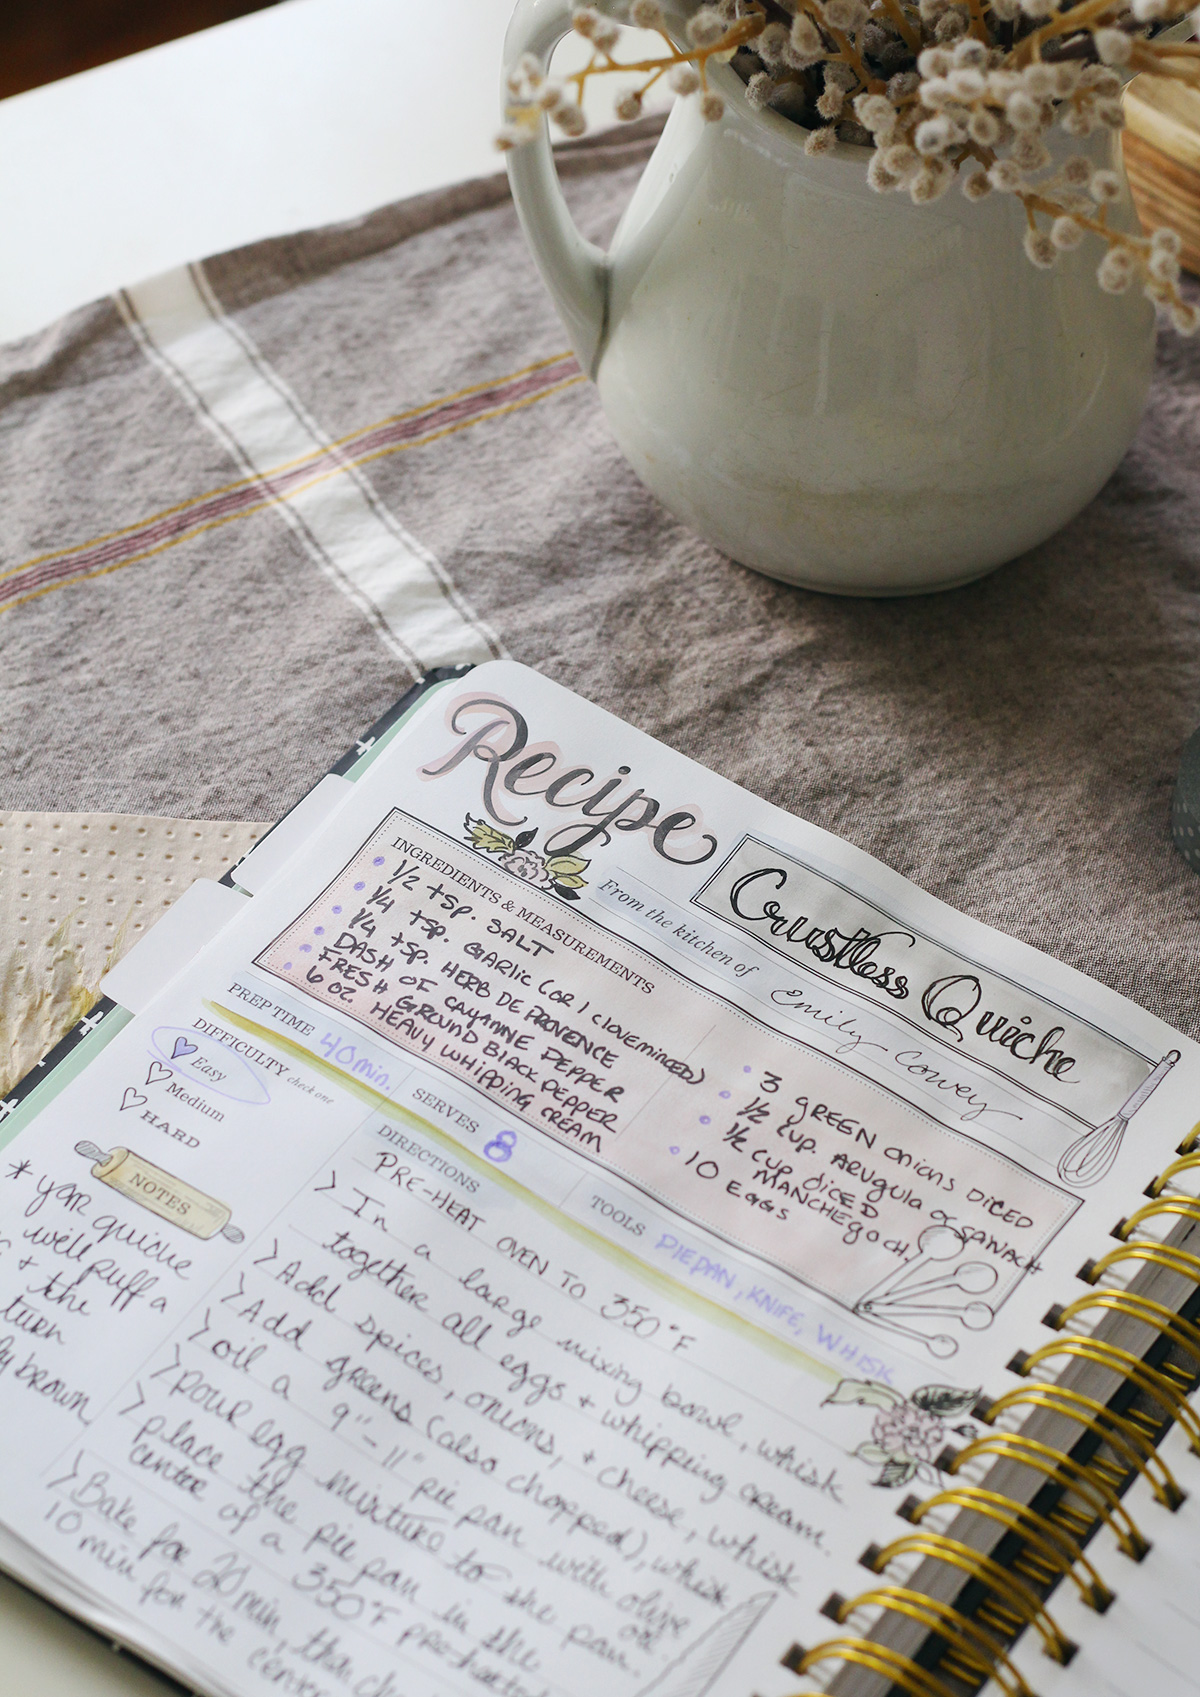 Recipe
Crustless Quiche
From the kitchen of Emily Cowey
INGREDIENTS & MEASUREMENTS
1/2 tsp. SALT
1/4 tsp. GARLIC (OR 1 clove minced)
1/4 tsp. HERB DE PROVENCE
DASH OF CAYANNE PEPPER
FRESH GROUND BLACK PEPPER
6 oz. HEAVY WHIPPING CREAM
3 GREEN ONIONS DICED
1/2 CUP. ARUGULA OR SPANACH
1/2 CUP DICED
MANCHEGO CH.
10 EGGS
PREP TIME 40 min.
SERVES 8
TOOLS PIEPAN, KNIFE, WHISK
DIFFICULTY check one
Easy
Medium
HARD
NOTES
* your quiche
will puff a
+ the
turn
brown
DIRECTIONS
PRE-HEAT OVEN TO 350°F
> In a large mixing bowl, whisk
together all eggs + whipping cream.
> Add spices, onions, + cheese, whisk
> Add greens (also chopped), whisk
> oil a 9" - 11" pie pan with olive
oil.
> pour egg mixture to the pan.
> place the pie pan in the
center of a 350°F pre-heated
> Bake for 20 min, then
10 min for the
center